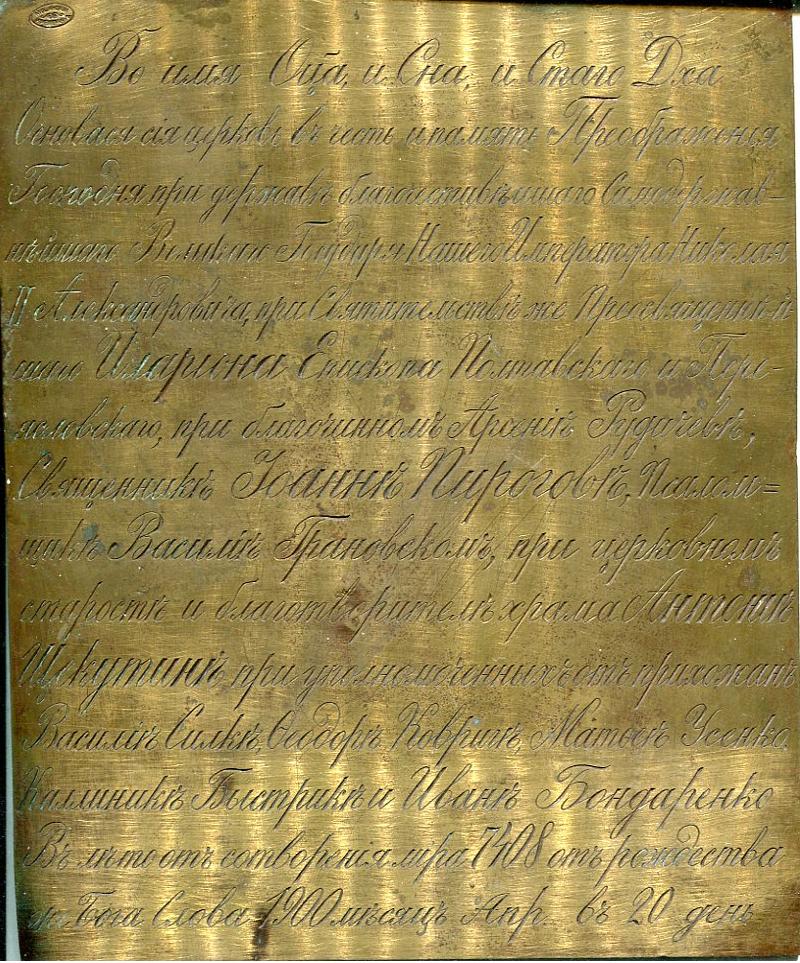 Во имя Оца, и Сна, и Стаго Дха
Основася сія церковь въ честь и память Преображенія
Господня при державѣ благочестивѣйшаго Самодержав-
нѣйшаго Великаго Государя Нашего Императора Николая
II Александровича, при Святительствѣ же Преосвященнѣй
шаго Иларіона Епископа Полтавскаго и Пере-
яславскаго, при благочинномъ Арсеніѣ Рудичевѣ,
Священникѣ Іоаннѣ Пироговѣ, Псалом=
щикѣ Василіѣ Грановскомъ, при церковномъ
старостѣ и благотворителѣ храма Антоніѣ
Щекутинѣ, при уполномоченныхъ отъ прихожанъ
Василіѣ Силкѣ, Ѳеодорѣ Ковригѣ, Матѳеѣ Усенко,
Каллиникѣ Быстрикѣ и Иванѣ Бондаренко
Въ лѣто отъ сотворенія мира 7408 отъ рождества
же Бога Слова 1900 мѣсяцъ Апр. въ 20 день